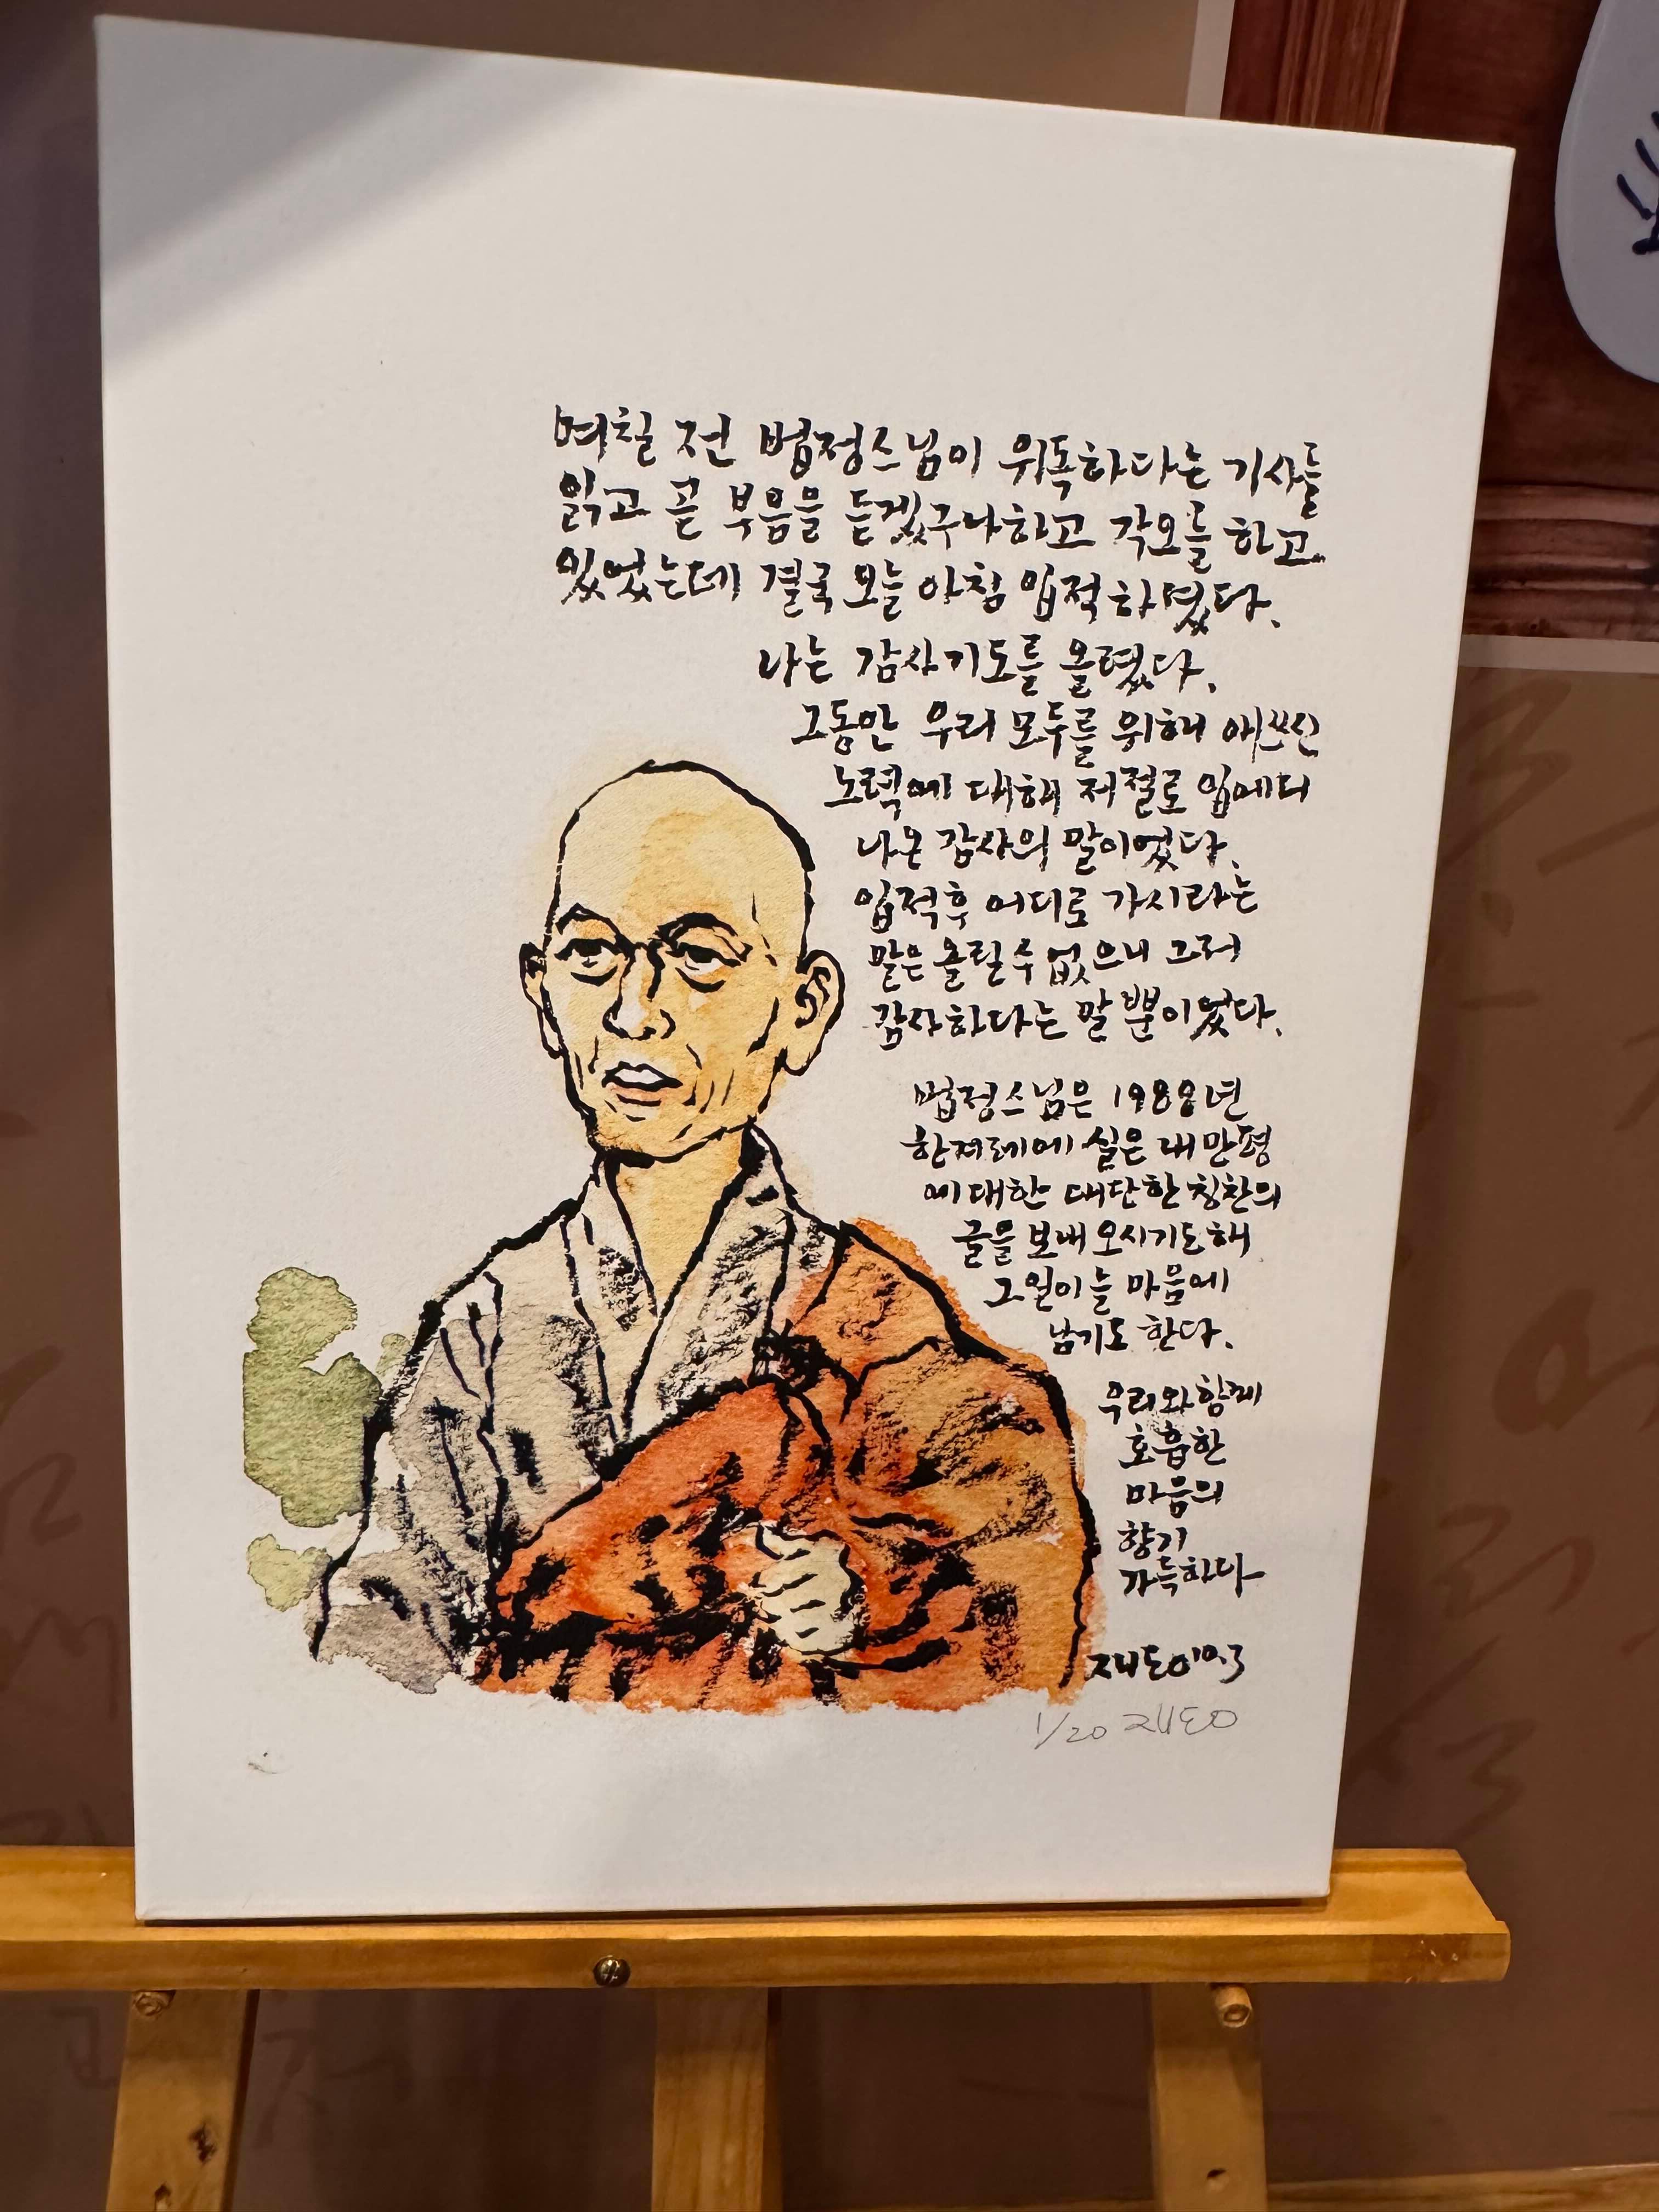 며칠 전 법정스님이 위독하다는 기사를
읽고 곧 부음을 듣겠구나하고 각오를 하고
있었는데 결국 오늘 아침 입적하셨다.
나는 감사기도를 올렸다.
그동안 우리 모두를 위해 애쓰신
노력에 대해 저절로 입에서
나온 감사의 말이었다.
입적후 어디로 가시라는
말은 올릴 수 없으니 그저
감사하다는 말 뿐이었다.
법정스님은 1988년
한겨레에 실은 내 만평
에 대한 대단한 칭찬의
글을 보내 오시기도 해
그 일이 늘 마음에
남기도 한다.
우리와 함께
호흡한
마음의
향기
가득하다
재동 010.3
1/20 재동